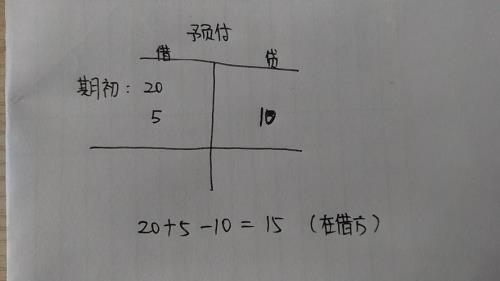 预付
借 贷
期初: 20
5 10
20+5-10=15 (在借方)